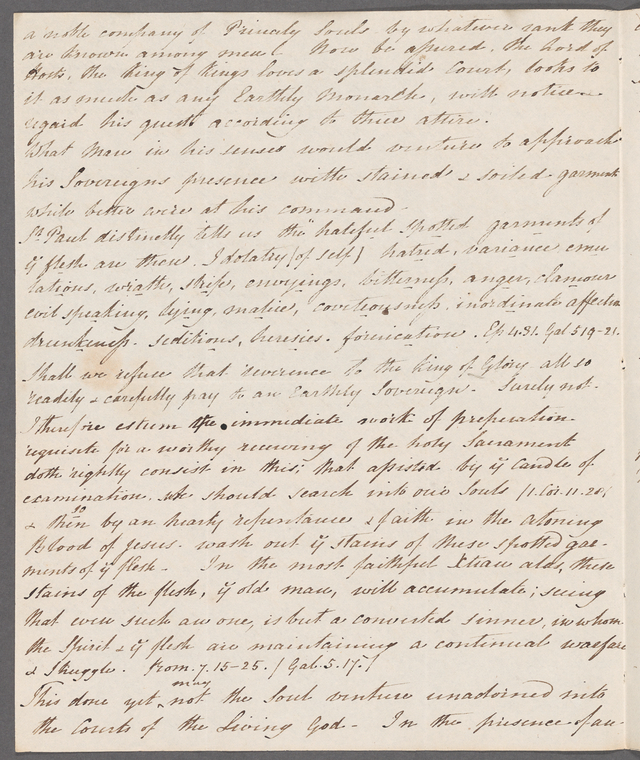 a noble company of Princely Souls by whatever rank they
are known among men. Now be assured, the Lord of
Hosts, the King of Kings loves a splendid Court, looks to
it as much as any Earthly Monarch, will notice &
regard his guests according to their attire.
What Man in his senses would venture to approach
his Sovereigns presence with stained & soiled garments
while better were at his command
St. Paul distinctly tells us the hateful spotted garments of
ye flesh are these. Idolatry (of self) hatred, variance, emu
lations, wrath, strife, envyings, bitterness, anger, clamour
evil speaking, lying, malice, covetiousness, inordinate affection
drunkeness, seditions, heresies, fornication. Ep. 4.31. Gal 5 19-21.
Shall we refuse that reverence to the King of Glory, all so
readily & carefully pay to an Earthly Sovereign. Surely not.
I therefore esteem the immediate work of preparation
requisite for a worthy receiving of the holy Sacrament
doth rightly consist in this; that assisted by ye Candle of
examination we should search into our Souls (1. Cor. 11. 28)
& then so by an hearty repentance & faith in the atoning
Blood of Jesus. wash out ye stains of these spotted gar-
ments of ye flesh. In the most faithful Xtian alas, these
stains of the flesh, ye old man, will accumulate; seeing
that even such an one, is but a converted sinner, in whom
the Spirit & ye flesh are maintaining a continual warfare
& Struggle. Rom. 7. 15-25. / Gal. 5. 17. /
This done yet may not the Soul venture unadorned into
the Courts of the Living God - In the presence of an-